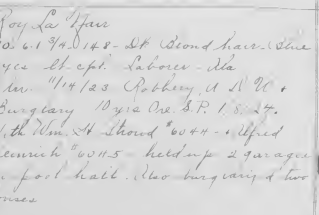 Roy La Nair
6.1 3/4 - 148 - Dk Blond hair - Blue
yes lt cpl. Laborer - Ala
11/14/23 Robbery, A R W +
Burglary 10 yrs Ore. S.P. 1.8.24.
ith Wm. H Stroud #6044 - + Alfred
#6045 - held up 2 garages
pool hall. Also burglary of two